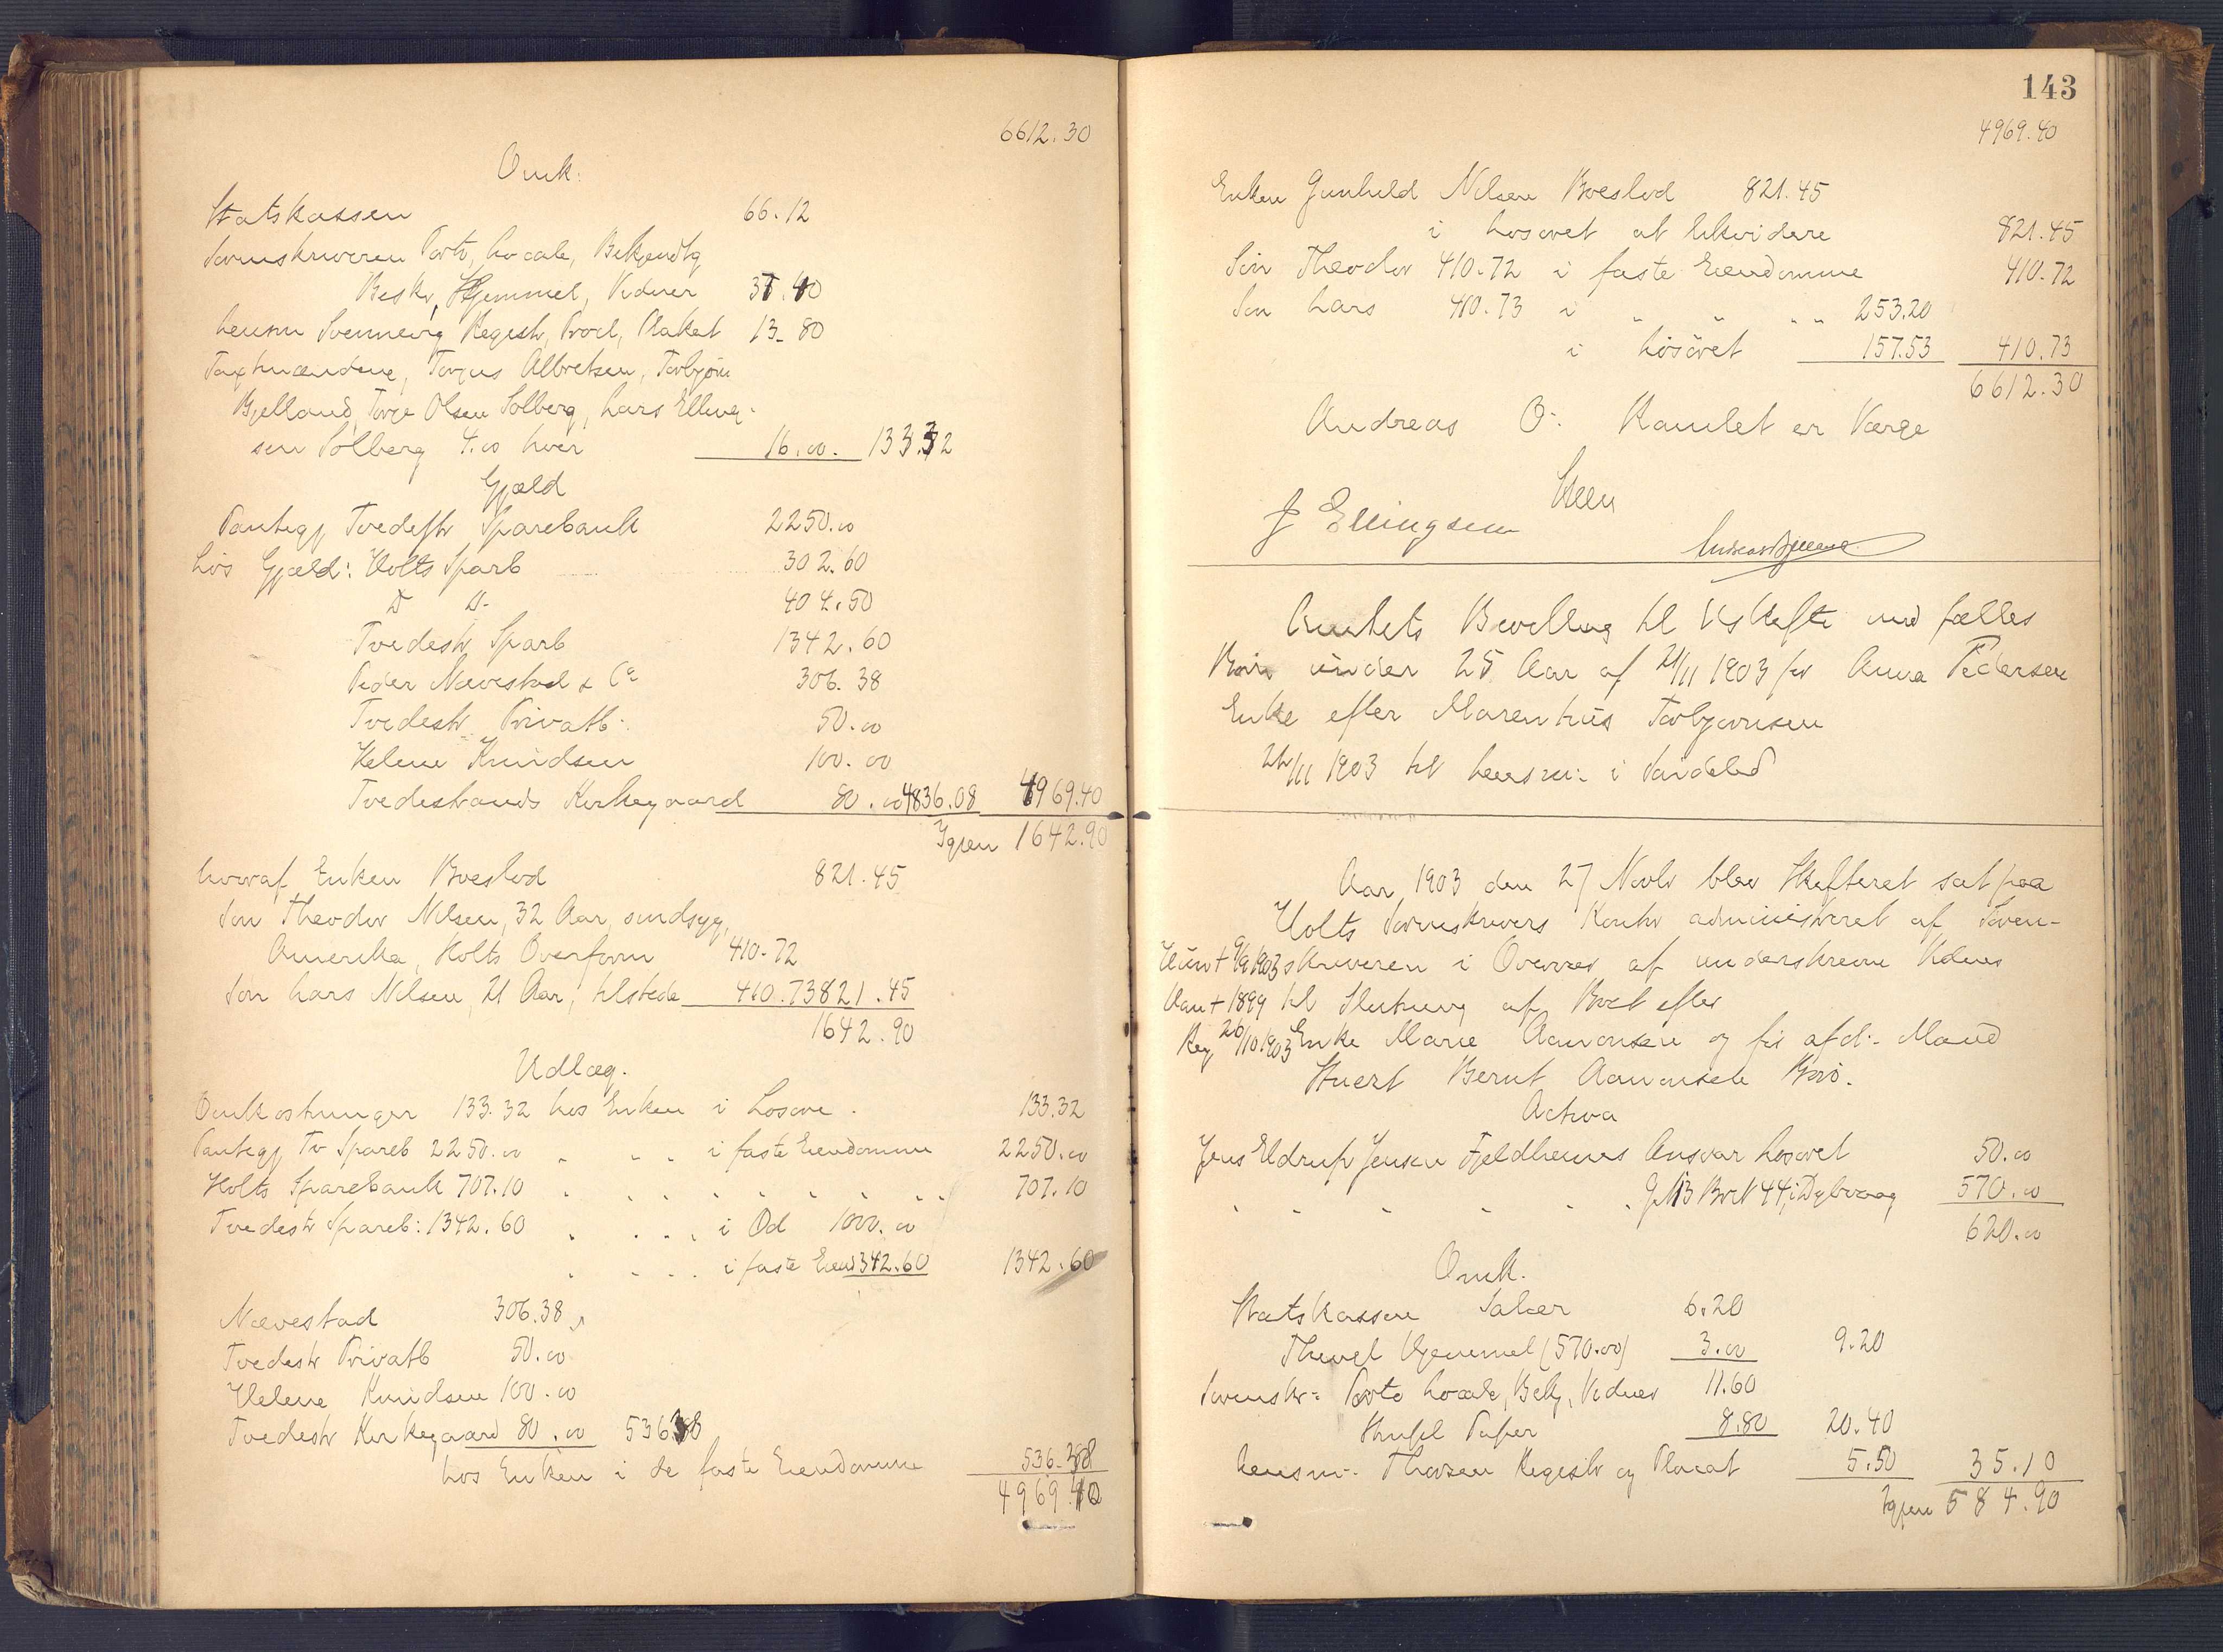 6612.30
Omk.
Statskassen 66.12
Sorenskriveren Porto, Locale, Bekjendtg
Beskr, Hjemmel, Vidner 37.40
Lensm Svennevig Registr, Procl, Plakat 13.80
Taxtmændene, Torjus Albretsen, Torbjørn
Bjelland, Torje Olsen Solberg, Lars Elling-
sen Solberg 4.00 hver 16.00. 133.32
Gjæld
Pantegj Tvedestr Sparebank 2250.00
Løs Gjæld: Holts Sparb 302.60
D D- 404.50
Tvedestr Sparb 1342.60
Peder Nævestad & Co 306.38
Tvedestr Privatb: 50.00
Helene Knudsen 100.00
Tvedestrands Kirkegaard 80.00 4836.08 4969.40
Igjen 1642.90
hvoraf Enken Boeslod 821.45
Søn Theodor Nilsen, 32 Aar, sindsyg,
Amerika, Holts Overform 410.72
Søn Lars Nilsen, 21 Aar, tilstede 410.73 821.45
1642.90
Udlæg.
Omkostninger 133.32 hos Enken i Løsøre. 133.32
Pantegj Tv Spareb 2250.00 " " " i faste Eiendomme 2250.00
Holts Sparebank 707.10 " " " " " " " " 707.10
Tvedestr Spareb: 1342.60 " " " " i Od 1000.00
" " " " i faste Eiend 342.60 1342.60
Nævestad 306.38
Tvedestr Privatb 50.00
Helene Knudsen 100.00
Tvedestr Kirkegaard 80.00 536.38
hos Enken i de faste Eiendomme 536.38
4969.40
143
4969.40
Enken Gunhild Nilsen Boeslod 821.45
i Løsøret at likvidere 821.45
Søn Theodor 410.72 i faste Eiendomme 410.72
Søn Lars 410.73 i " " " " 253.20
i Løsøret 157.53 410.73
6612.30
Andreas O. Ramlet er Værge
Steen
J Ellingsen
Amtets Bevilling til Uskifte med fælles
Børn under 25 Aar af 21/11 1903 for Anna Pedersen
Enke efter Marenhius Torbjørnsen
24/11 1903 til Lensm: i Søndeled
Aar 1903 den 27 Novbr blev Skifteret sat paa
Holts Sorenskrivers Kontor administreret af Soren-
Hun + 9/9 1903 skriveren i Overvær af underskrevne Vidner
Han + 1899 til Slutning af Boet efter
Reg 26/10 1903 Enke Marie Aanonsen og før afd:- Mand
Knert Bernt Aanonsen Borø.
Activa
Jens Eldrup Jensen Fjeldheims Ansvar Løsøret 50.00
" " " " " " G N 13 Br N 44 i Dybvaag 570.00
620.00
Omk.
Statskassen Salær 6.20
Thingl Hjemmel (570.00) 3.00 9.20
Sorenskr: Porto Locale, Bekj, Vidner 11.60
Stempl Papir 8.80 20.40
Lensm:- Thorsen Registr og Placat 5.50 35.10
Igjen 584.90